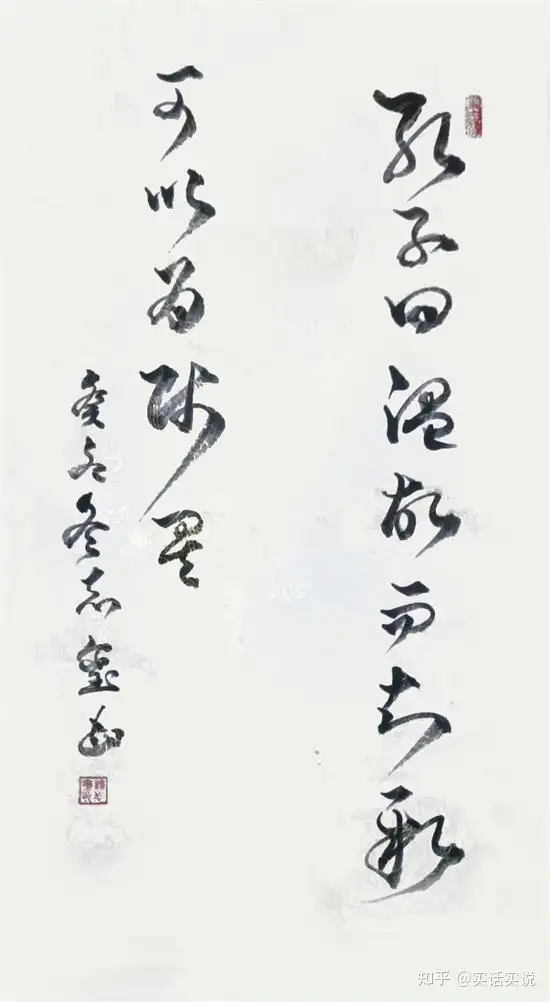 孔子曰温故而知新
可以为师矣
癸卯冬志
知乎 @实话实说